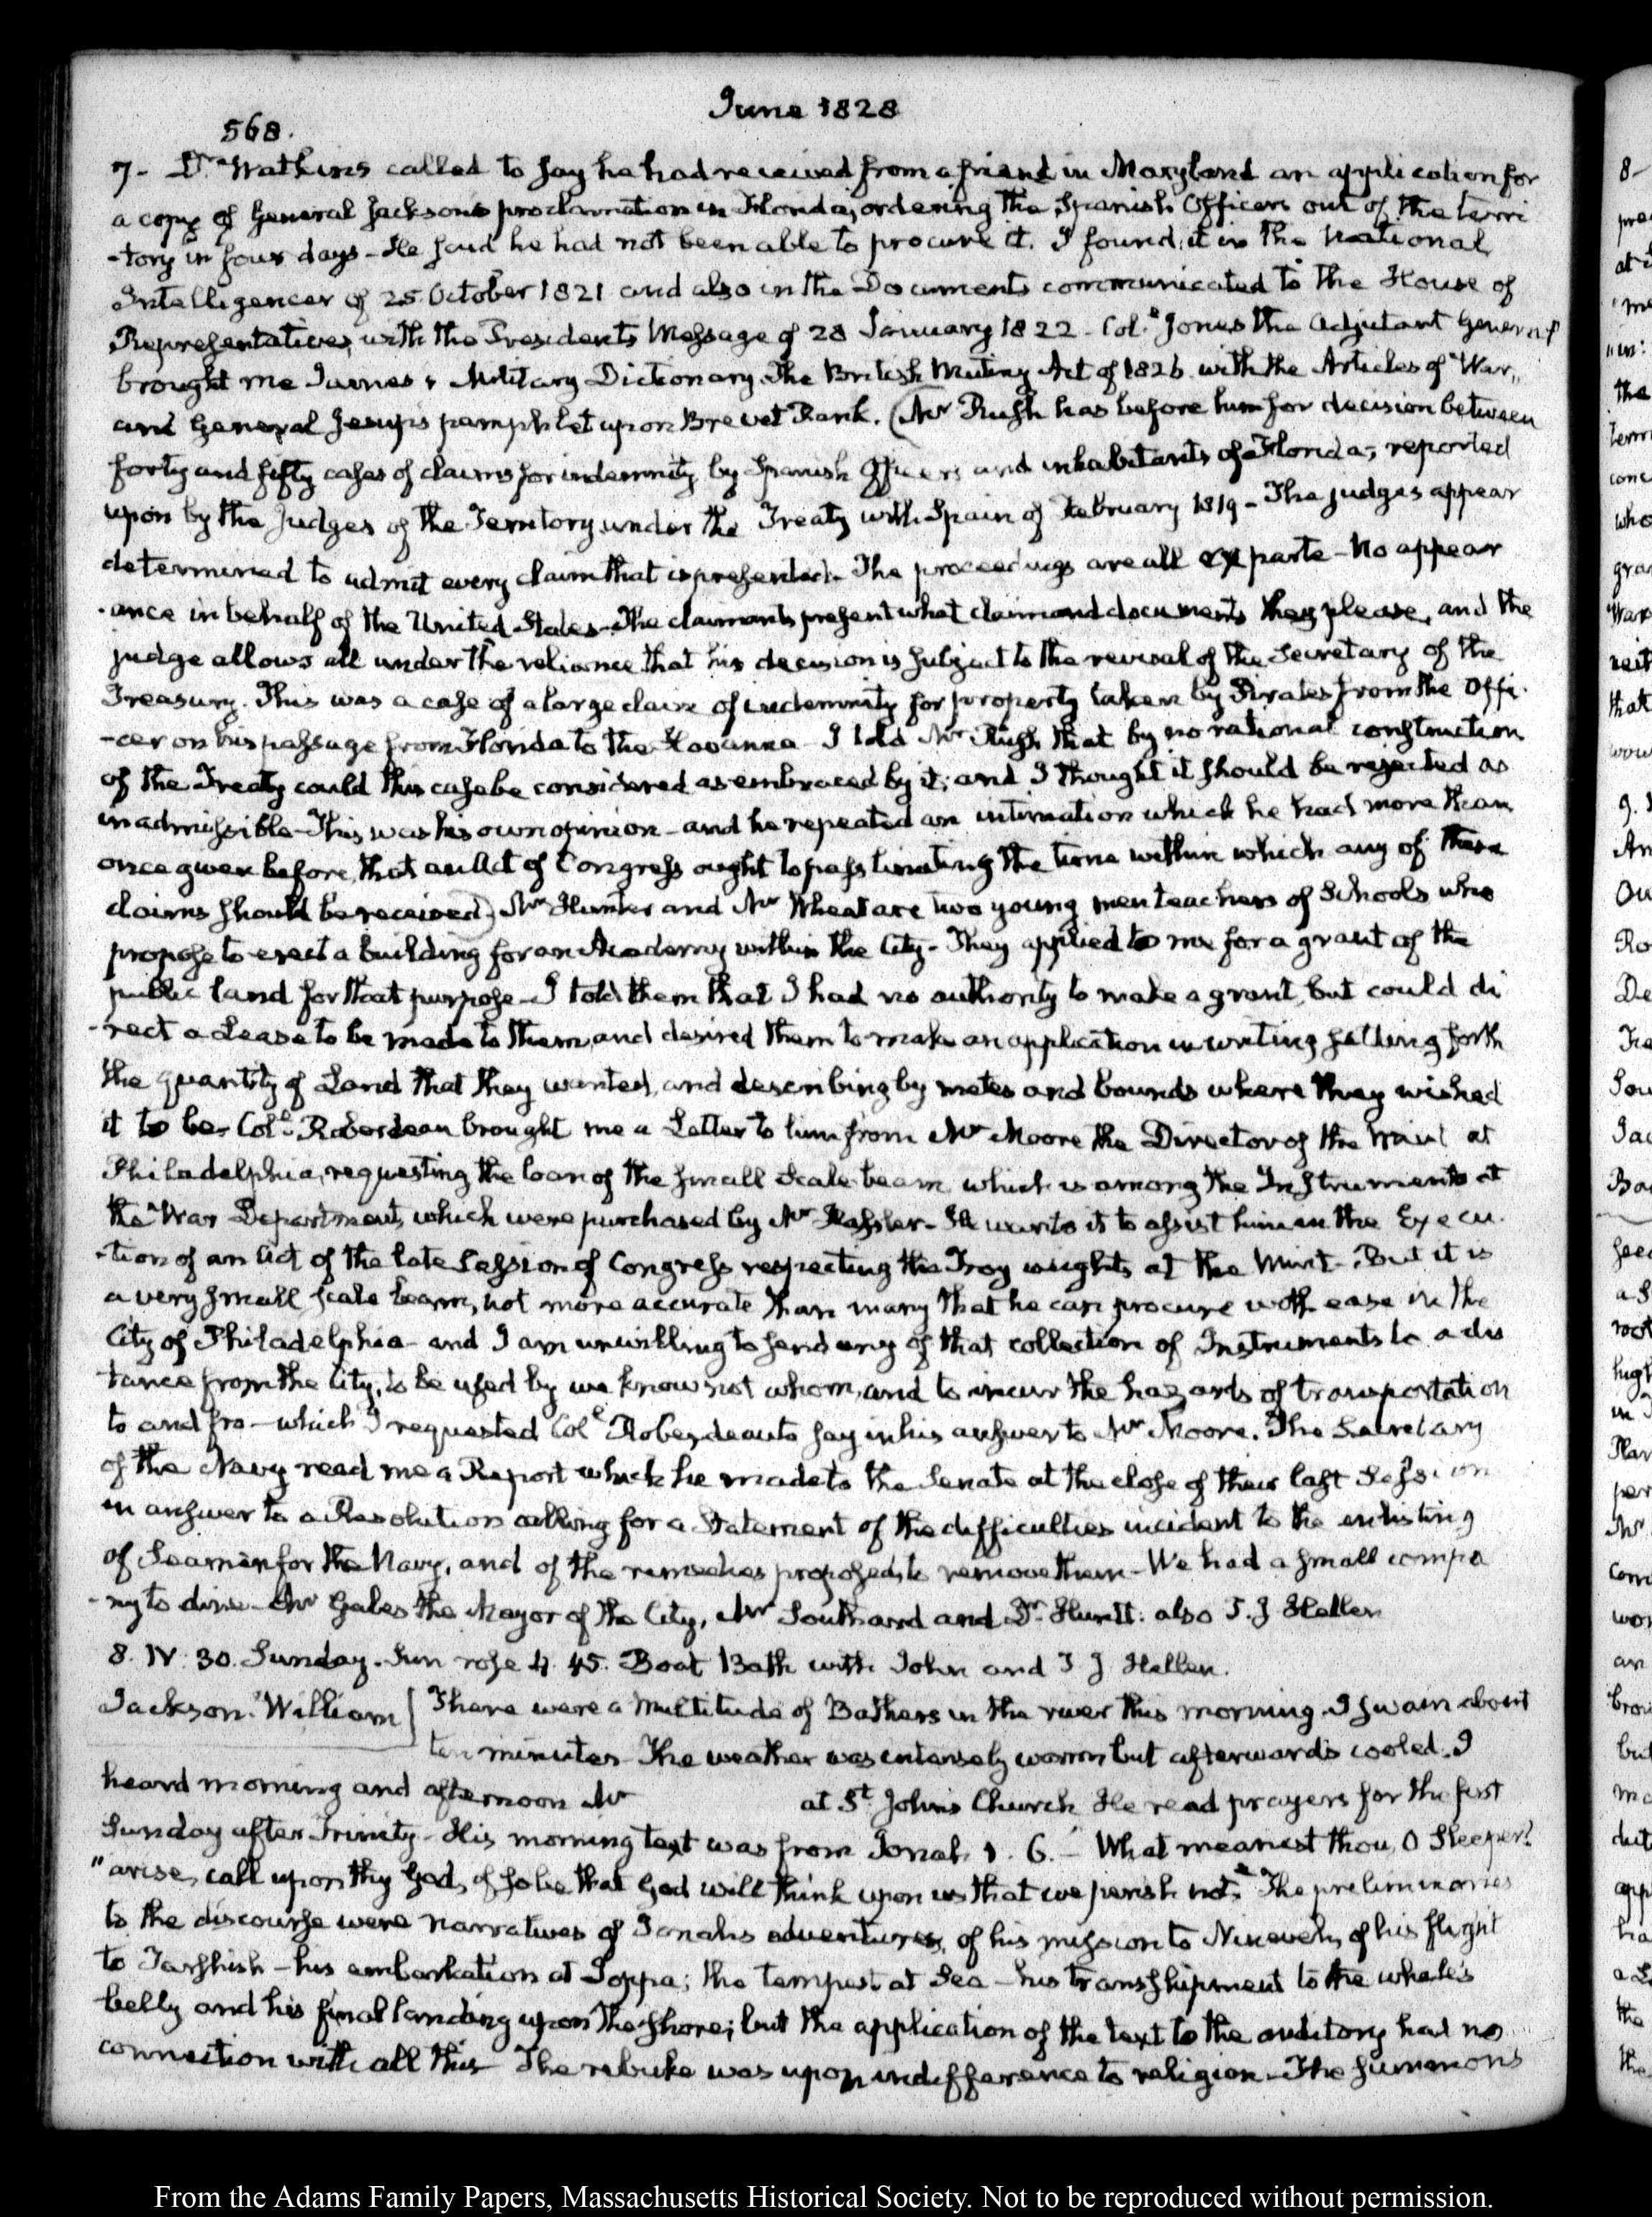 June 1828
568.
7- Dr. Watkins called to say he had received from a friend in Maryland an application for
a copy of General Jackson's proclamation in Florida, ordering the Spanish Officers out of the terri
-tory in four days - He said he had not been able to procure it. I found it in the National
Intelligencer of 25. October 1821 and also in the Documents communicated to the House of
Representatives, with the Presidents Message of 28 January 1822 - Col. Jones the Adjutant General
brought me James's Military Dictionary. The British Mutiny Act of 1826 with the Articles of War,
and General Jesup's pamphlet upon Brevet Rank. (Mr Rush has before him for decision between
forty and fifty cases of claims for indemnity by Spanish Officers and inhabitants of Florida; reported
upon by the Judges of the Territory under the Treaty with Spain of February 1819 - The judges appear
determined to admit every claim that is presented. The proceedings are all ex parte - No appear
-ance in behalf of the United States - The claimants present what claim and documents they please, and the
judge allows all under the reliance that his decision is subject to the revisal of the Secretary of the
Treasury. This was a case of a large claim of indemnity for property taken by Pirates from the Offi-
-cer on his passage from Florida to the Havanna - I told Mr Rush that by no rational construction
of the Treaty could this case be considered as embraced by it; and I thought it should be rejected as
inadmissible - This was his own opinion - and he repeated an intimation which he had more than
once given before, that an Act of Congress ought to pass limiting the time within which any of these
claims should be received) Mr Hunter and Mr Wheat are two young men teachers of Schools who
propose to erect a building for an Academy within the City - They applied to me for a grant of the
public land for that purpose - I told them that I had no authority to make a grant, but could di
-rect a Lease to be made to them, and desired them to make an application in writing setting forth
the quantity of Land that they wanted, and describing by metes and bounds where they wished
it to be. Coll. Roberdeau brought me a Letter to him from Mr Moore the Director of the Mint at
Philadelphia, requesting the loan of the small Scale beam which is among the Instruments at
the War Department, which were purchased by Mr Hassler - He wants it to assist him in the Execu-
-tion of an Act of the late Session of Congress respecting the Troy weights at the Mint - But it is
a very small scale beam, not more accurate than many that he can procure with ease in the
City of Philadelphia - and I am unwilling to send any of that collection of Instruments to a dis
tance from the City, to be used by we know not whom, and to incur the hazards of transportation
to and fro - which I requested Coll. Roberdeau to say in his answer to Mr Moore. The Secretary
of the Navy read me a Report which he made to the Senate at the close of their last Session
in answer to a Resolution calling for a Statement of the difficulties incident to the enlisting
of Seamen for the Navy, and of the remedies proposed to remove them - We had a small compa
-ny to dine - Mr Gales the Mayor of the City, Mr Southard and Dr. Huntt: also T. J Hellen
8. IV. 30. Sunday. Sun rose 4. 45. Boat Bath with John and T J. Hellen.
Jackson. William There were a Multitude of Bathers in the river this morning. I swam about
ten minutes - The weather was intensely warm but afterwards cooled. I
heard morning and afternoon Mr at St. John's Church He read prayers for the first
Sunday after Trinity - His morning text was from Jonah 1. 6. - What meanest thou, O Sleeper?
"arise, call upon thy God, if so be that God will think upon us that we perish not." The preliminaries
to the discourse were narratives of Jonahs adventures, of his mission to Nineveh, of his flight
to Tarshish - his embarkation at Joppa; the tempest at Sea - his transshipment to the whale's
belly and his final landing upon the shore; but the application of the text to the auditory had no
connection with all this - The rebuke was upon indifference to religion - The summons
From the Adams Family Papers, Massachusetts Historical Society. Not to be reproduced without permission.